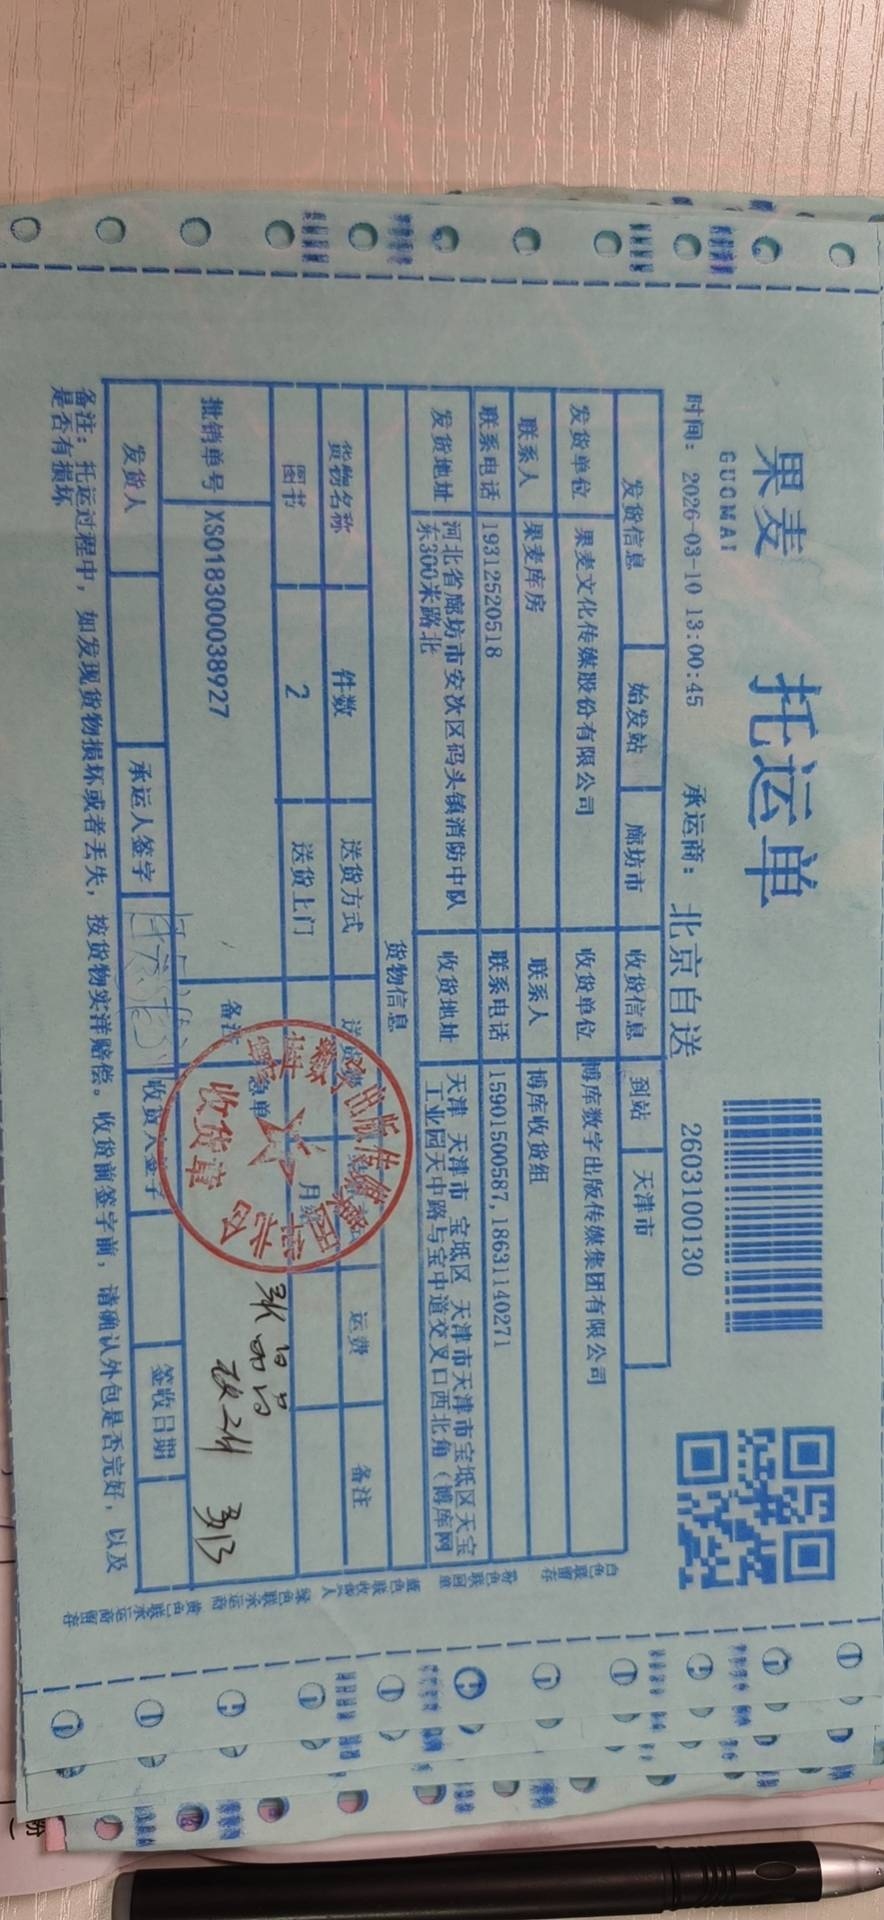 果麦 托运单
GUOMAI
时间: 2026-03-10 13:00:45 承运商: 北京自送 2603100130
发货信息 始发站 廊坊市 收货信息 到站 天津市
发货单位 果麦文化传媒股份有限公司 收货单位 博库数字出版传媒集团有限公司
联系人 果麦库房 联系人 博库收货组
联系电话 19312520518 联系电话 15901500587,18631140271
发货地址 河北省廊坊市安次区码头镇消防中队 收货地址 天津 天津市 宝坻区 天津市天津市宝坻区天宝
东300米路北 工业园天中路与宝中道交叉口西北角（博库网
货物信息
货物名称 件数 送货方式 运费 备注
图书 2 送货上门 月
批销单号 XS018300038927 备注
收货章
发货人 承运人签字 收货人签字 签收日期
备注: 托运过程中, 如发现货物损坏或者丢失, 按货物实洋赔偿。收货前签字前, 请确认外包是否完好, 以及
是否有损坏
白色联留存 粉色联回单 蓝色联收货人 绿色联承运商 黄色联承运商留存